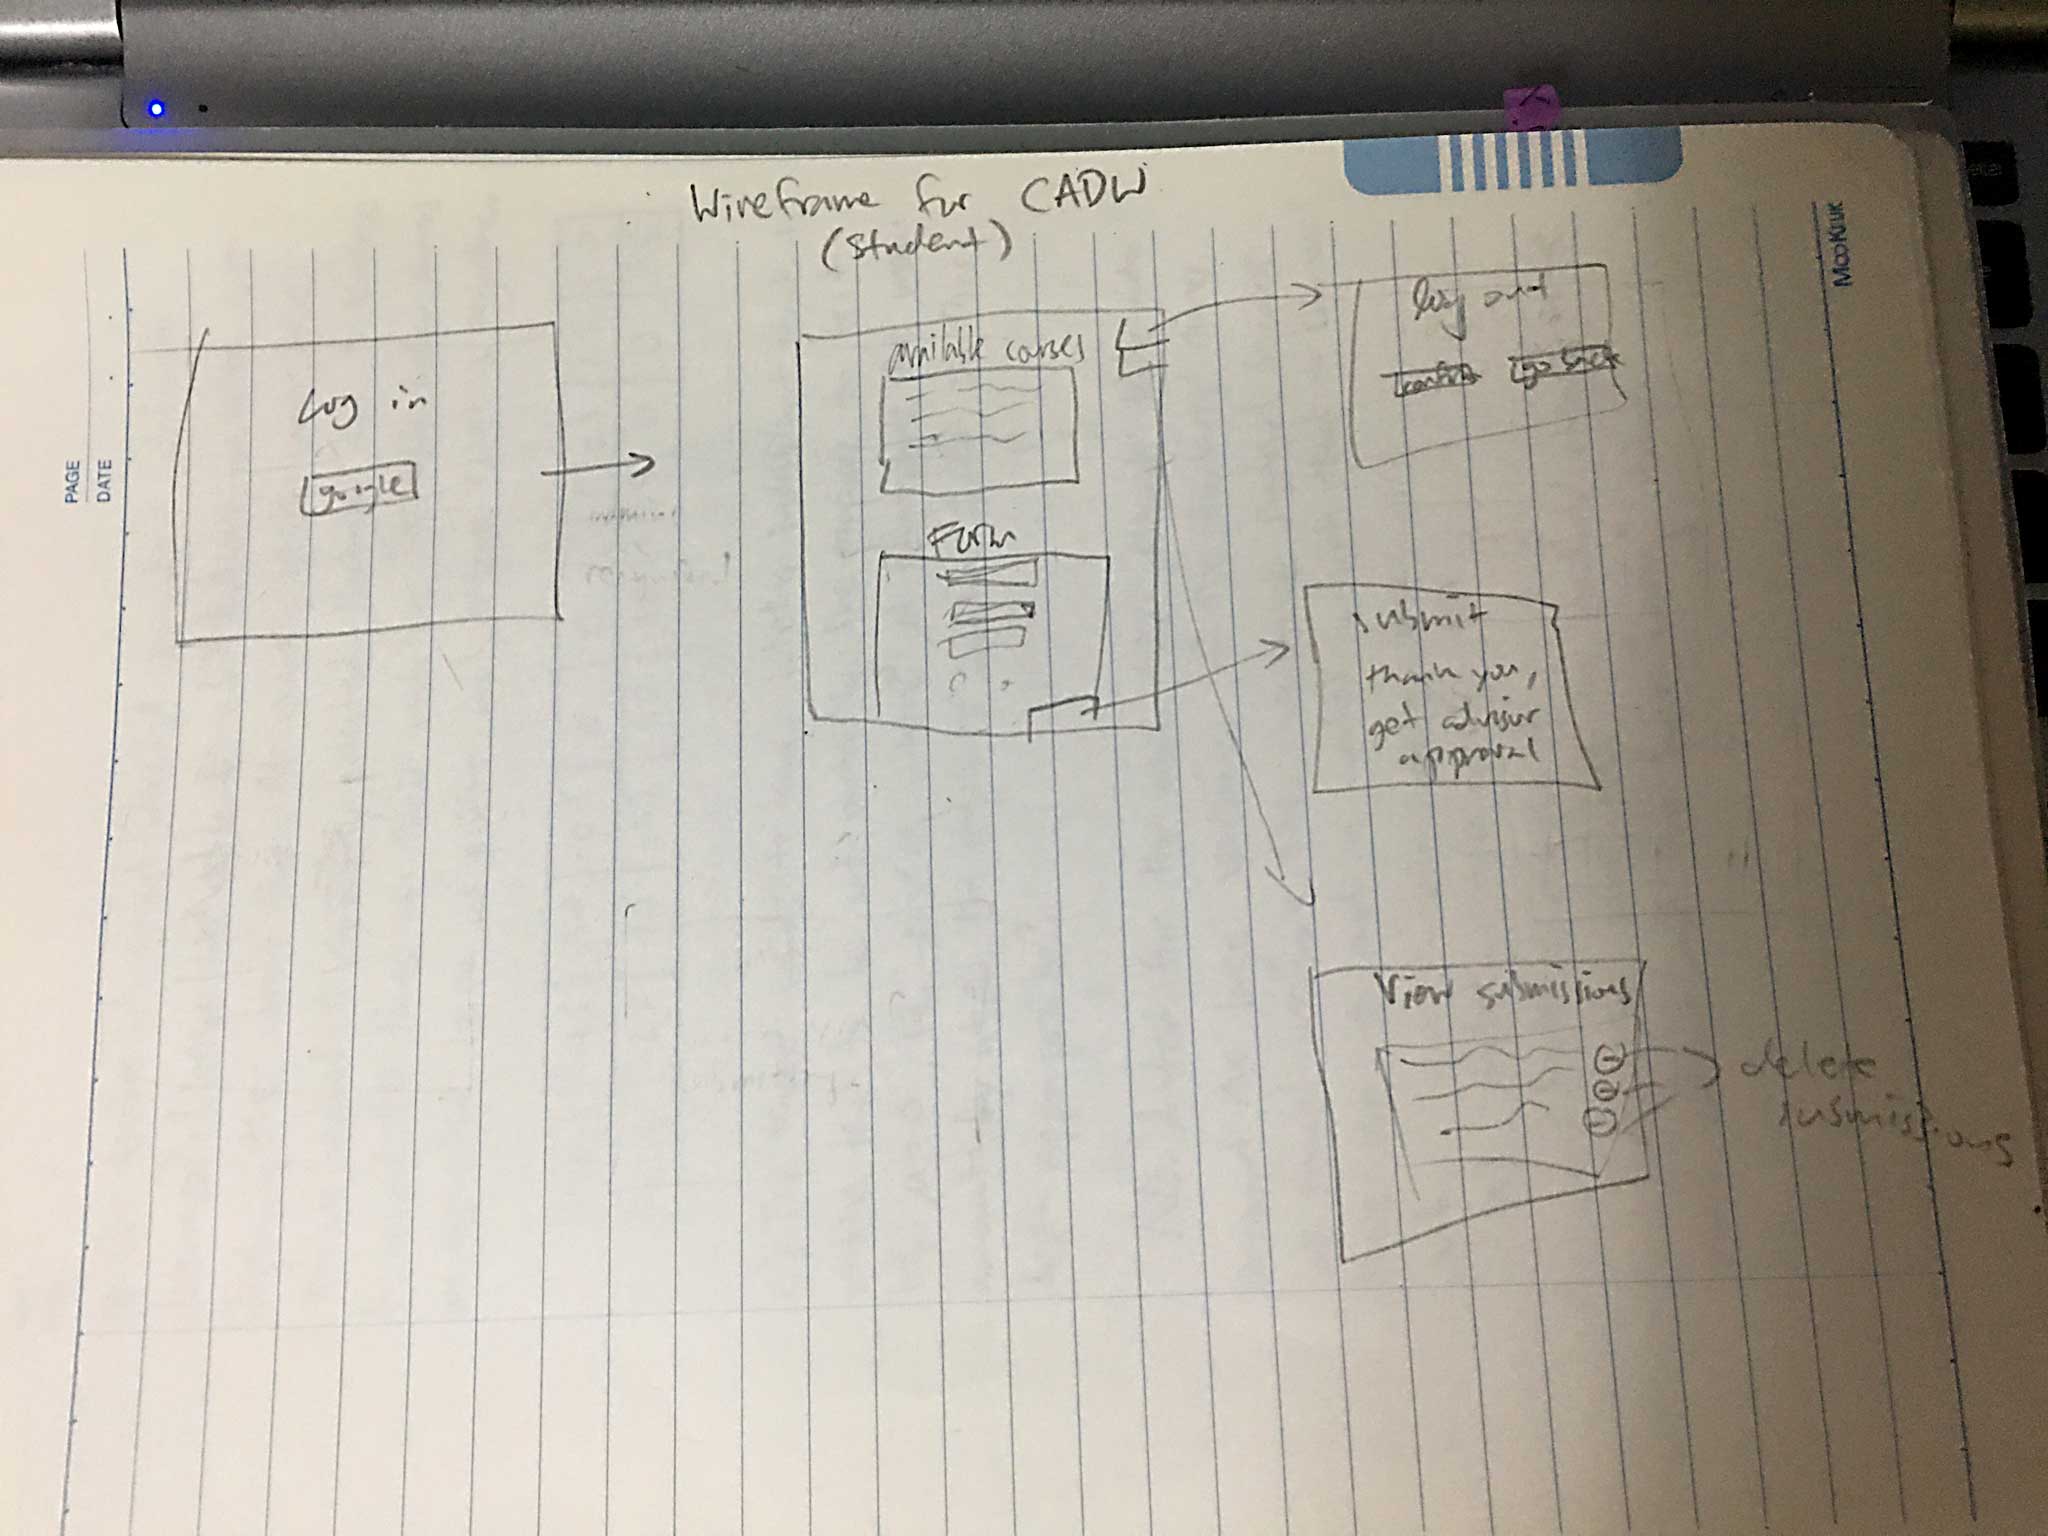 Wireframe for CADW
(student)
Log in
google
available courses
Form
log out
confirm
go back
submit
thank you,
get advisor
approval
View submissions
delete
submissions
PAGE
DATE
MooKuk